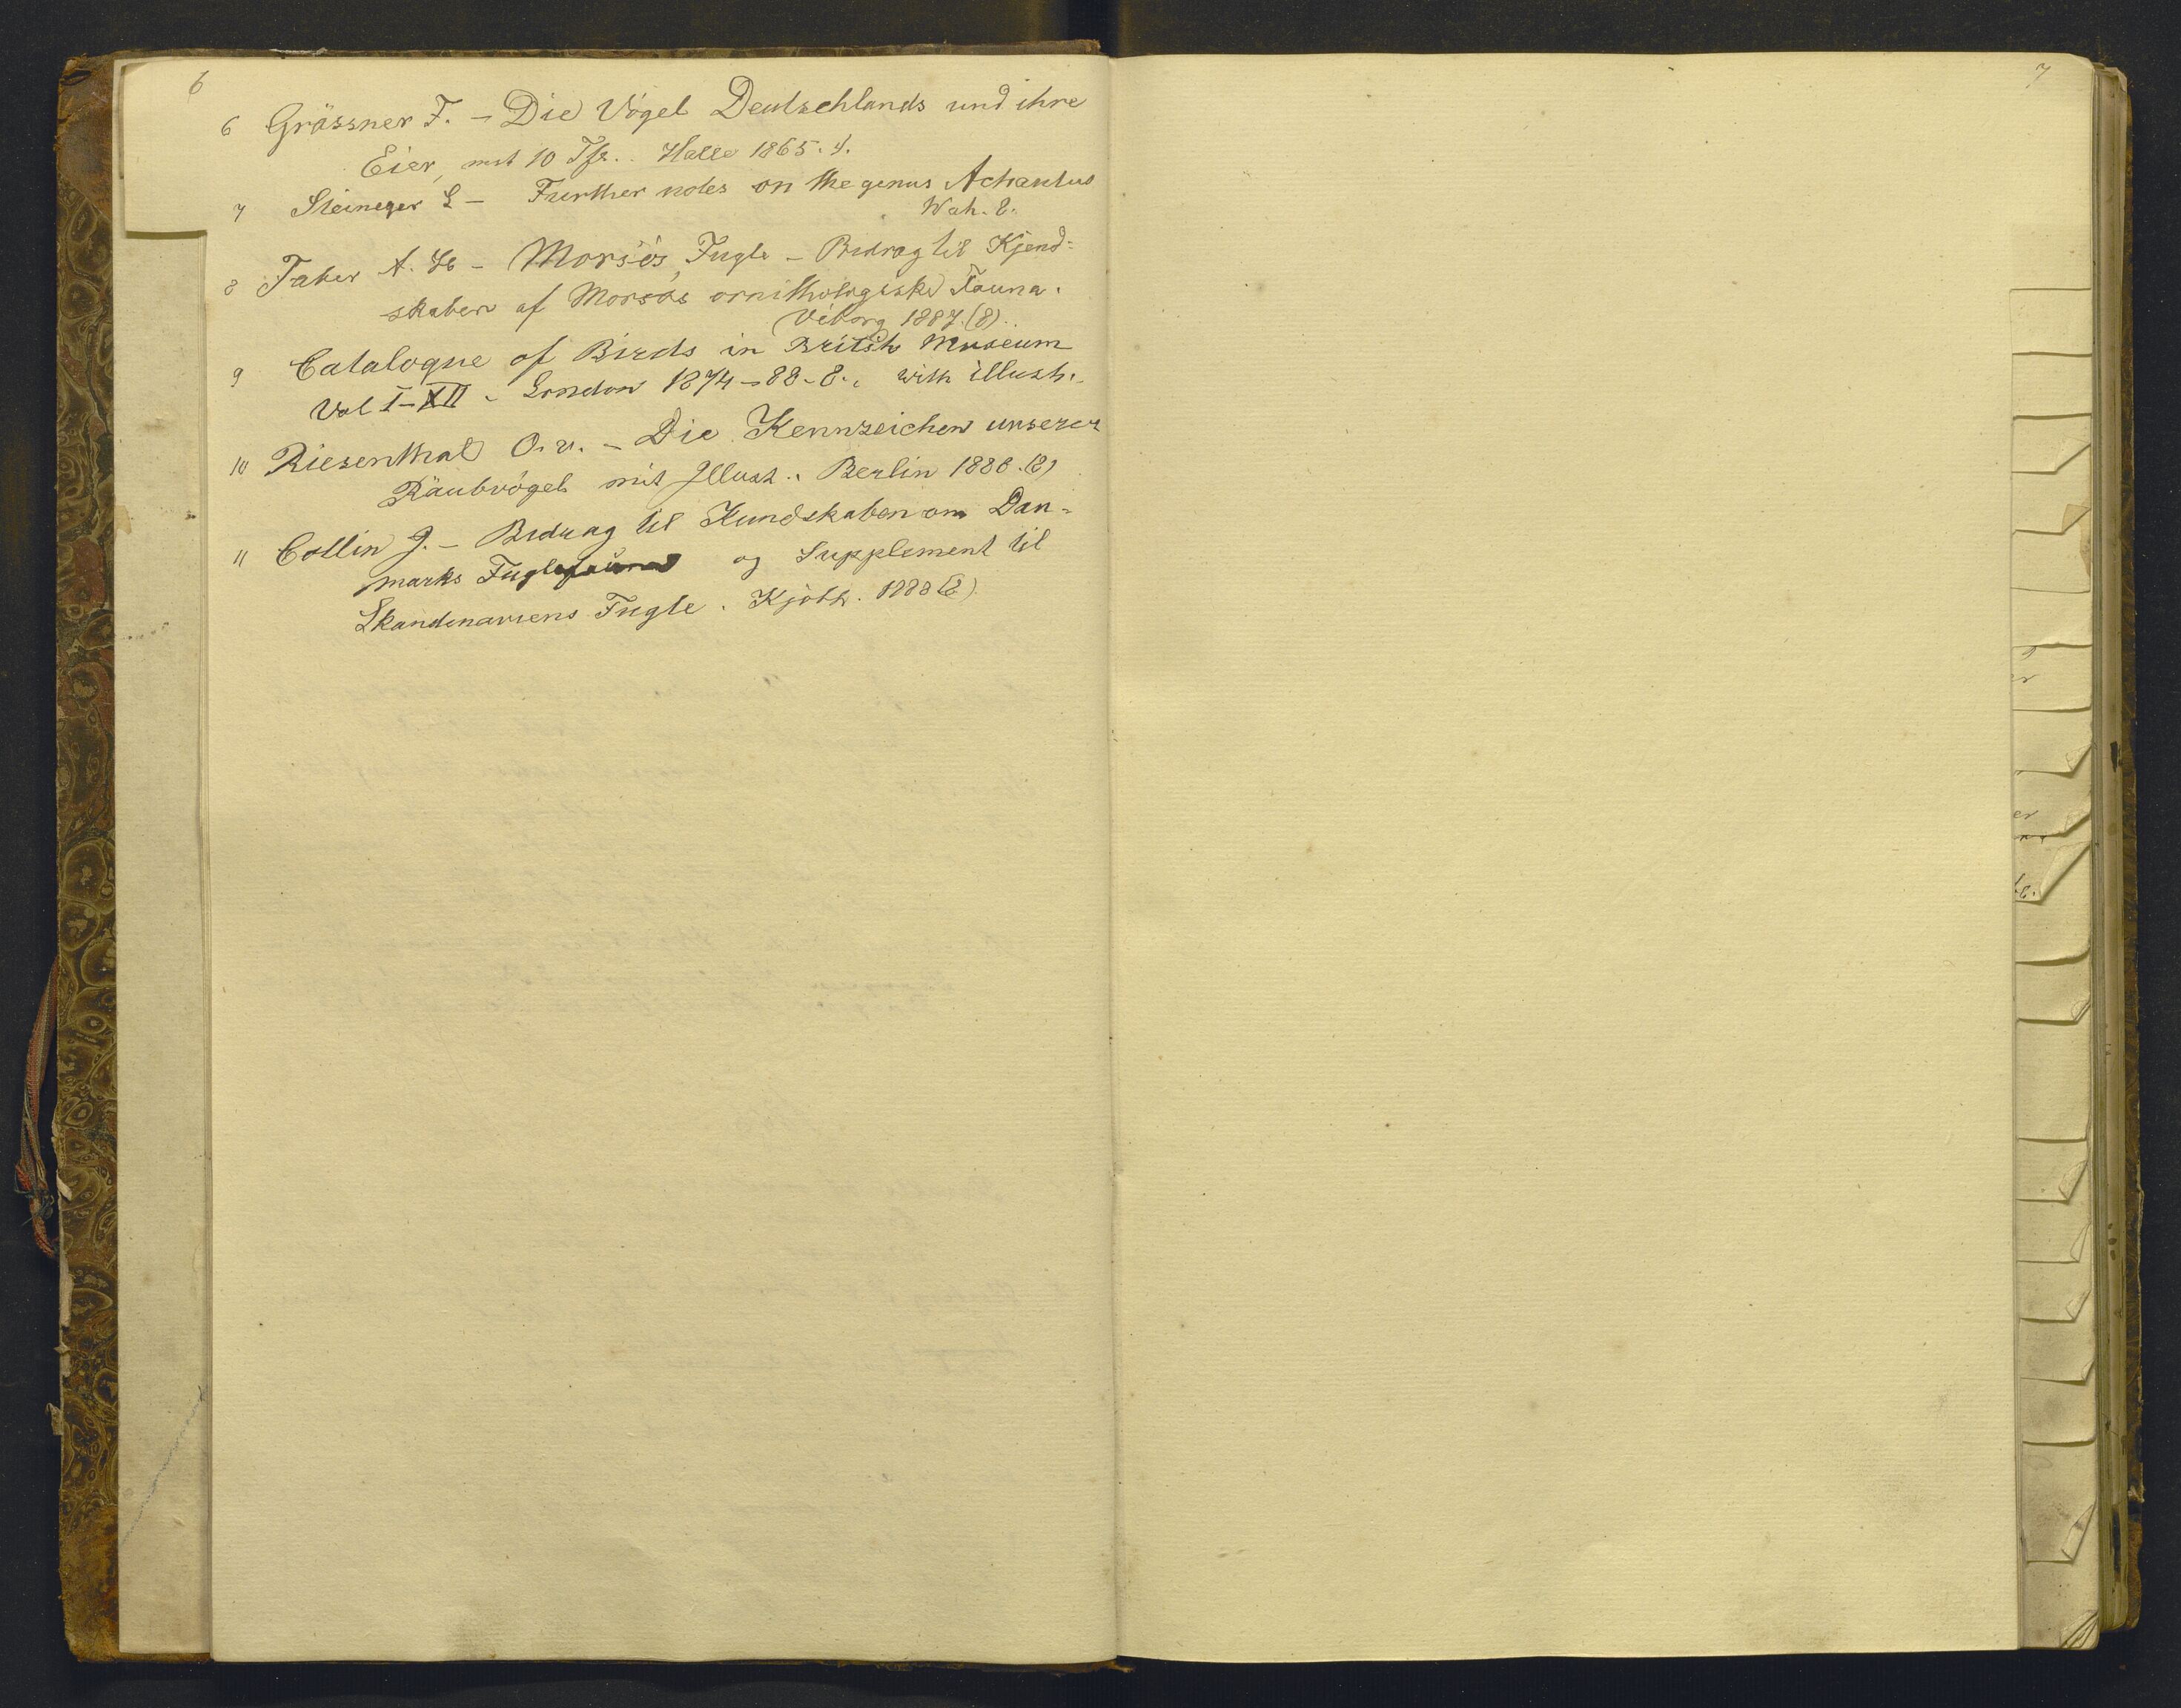 6
6 Grässner F. – Die Vögel Deutschlands und ihre
Eier, mit 10 Tfl. Halle 1865. 4.
7 Steineger L – Further notes on the genus Achantus
Wash. 8.
8 Faber A. H – Morsös Fugle – Bidrag til Kjend=
skaben af Morsös ornithologiske Fauna.
Viborg 1887. (8).
9 Catalogue of Birds in British Museum
Vol I–XII – London 1874–88 – 8. with illust.
10 Riesenthal O. v. – Die Kennzeichen unserer
Räubvögel mit Illust. Berlin 1888. (8)
11 Collin J. – Bidrag til Kundskaben om Dan-
marks Fuglefauna og Supplement til
Skandinaviens Fugle. Kjöbh. 1888 (8).
7
er